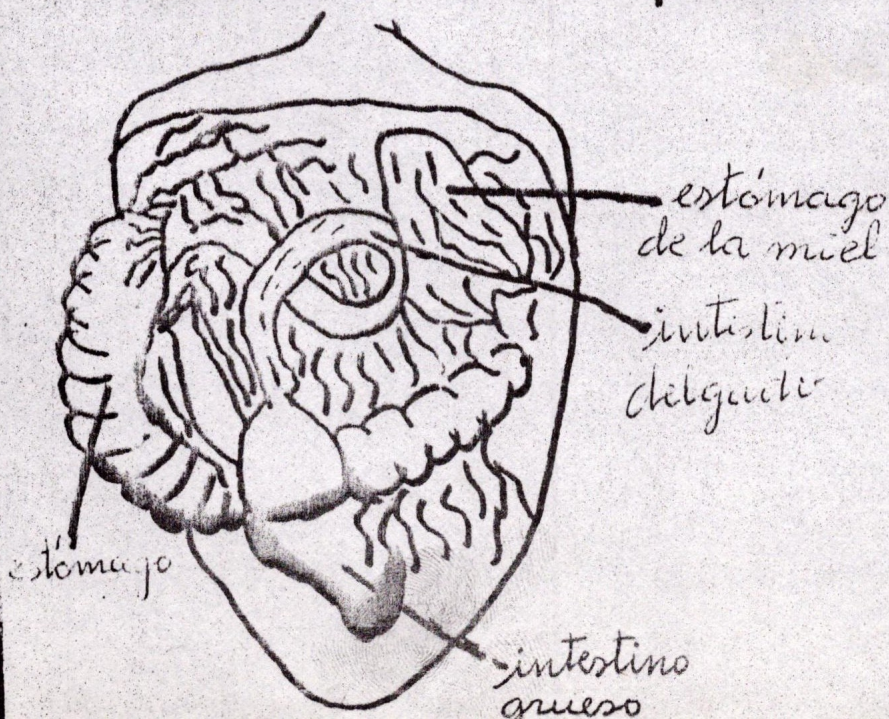 estómago
de la miel
intestin
delgado
estómago
intestino
grueso